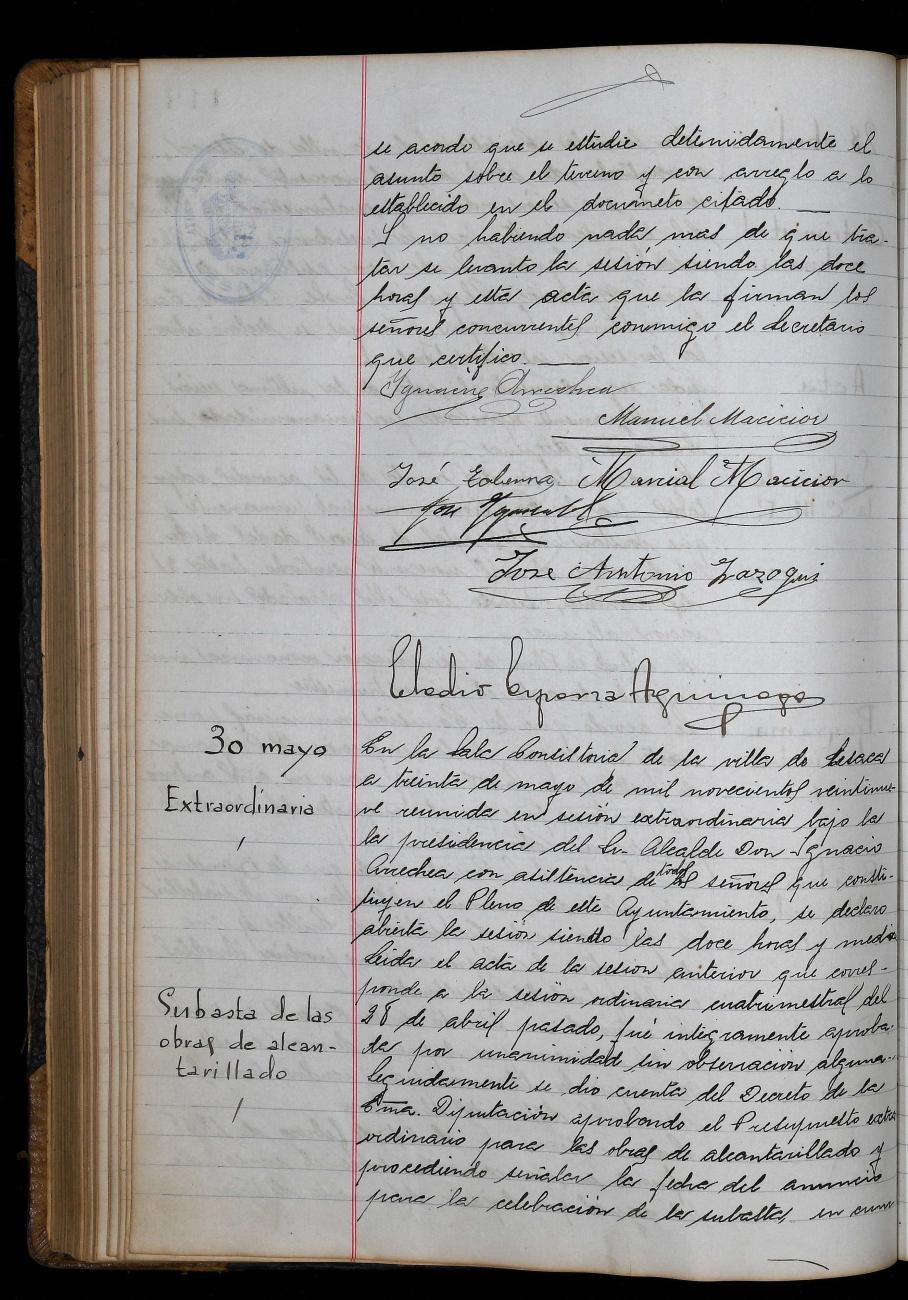 se acordo que se estudie detenidamente el
asunto sobre el terreno y con arreglo a lo
establecido en el documeto citado.
Y no habiendo nada mas de que tra-
tar se levanto la sesión siendo las doce
horas y esta acta que la firman los
señores concurrentes conmigo el Secretario
que certifico.
Ygnacio Arrechea
Manuel Macicior
José
Marcial Macicior
José
José Antonio Zazoqui
Eladio Esparza Aguinaga
30 mayo
Extraordinaria
En la Sala Consistorial de la villa de Lesaca
a treinta de mayo de mil novecientos veintinue-
ve reunida en sesión extraordinaria bajo la
la presidencia del Sr. Alcalde Don Ignacio
Arrechea con asistencia de todos los señores que consti-
tuyen el Pleno de este Ayuntamiento, se declaro
abierta la sesión siendo las doce horas y media
Leida el acta de la sesion anterior que corres-
ponde a la sesión ordinaria cuatrimestral del
28 de abril pasado, fué integramente aproba-
da por unanimidad sin observación alguna.
Subasta de las
obras de alcan-
tarillado
Seguidamente se dio cuenta del Decreto de la
Exma. Diputación aprobando el Presupuesto extra
ordinario para las obras de alcantarillado y
procediendo señalar la fecha del anuncio
para la celebración de la subasta, en cum